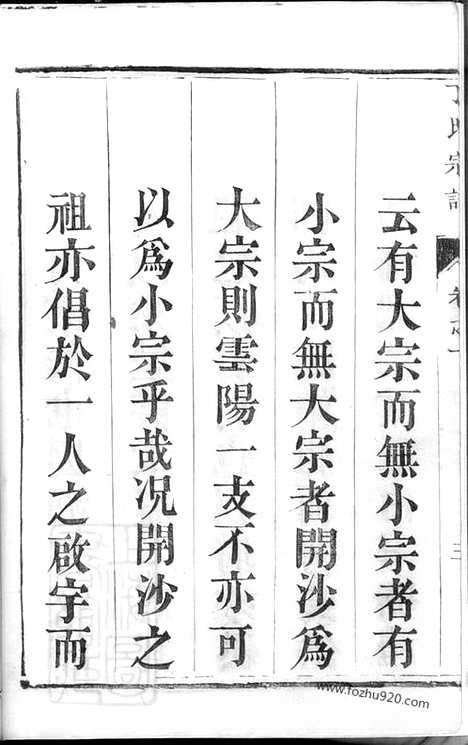 云有大宗而無小宗者有
小宗而無大宗者開沙爲
大宗則雲陽一支不亦可
以爲小宗乎哉况開沙之
祖亦倡於一人之啟宇而
三
www.fozhu920.com